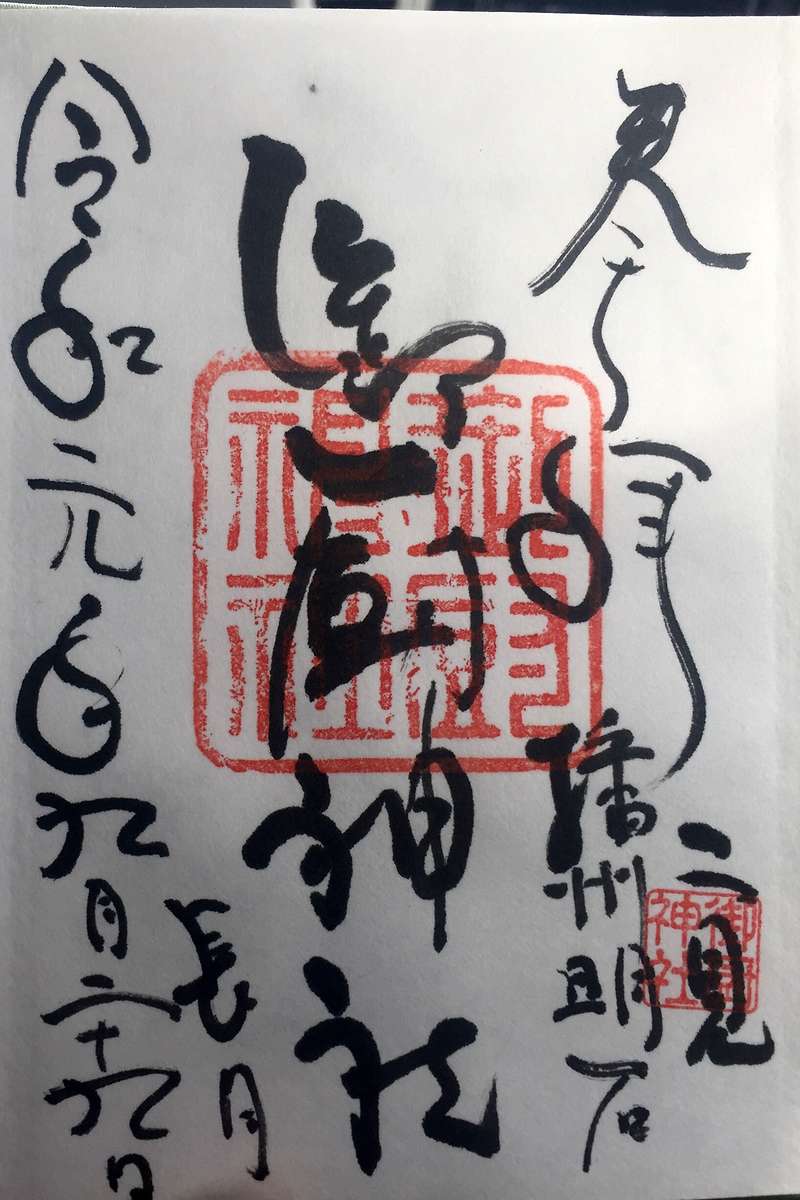 播州明石
二見
御厨神社
長月
令和元年九月二十九日
御厨
神社
御厨
神社